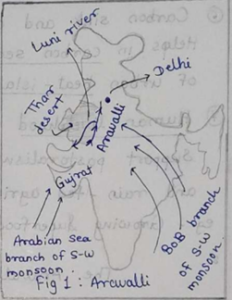 Luni river
Delhi
Thar
desert
Aravalli
Gujrat
Arabian Sea
branch of S-W
monsoon
BoB branch
of S-W
monsoon
Fig 1 : Aravalli